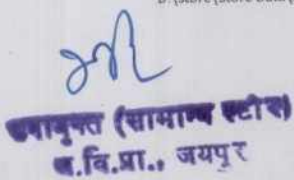 D:\Store\Store Data\
उपायुक्त (सामान्य स्टोर)
ज.वि.प्रा., जयपुर